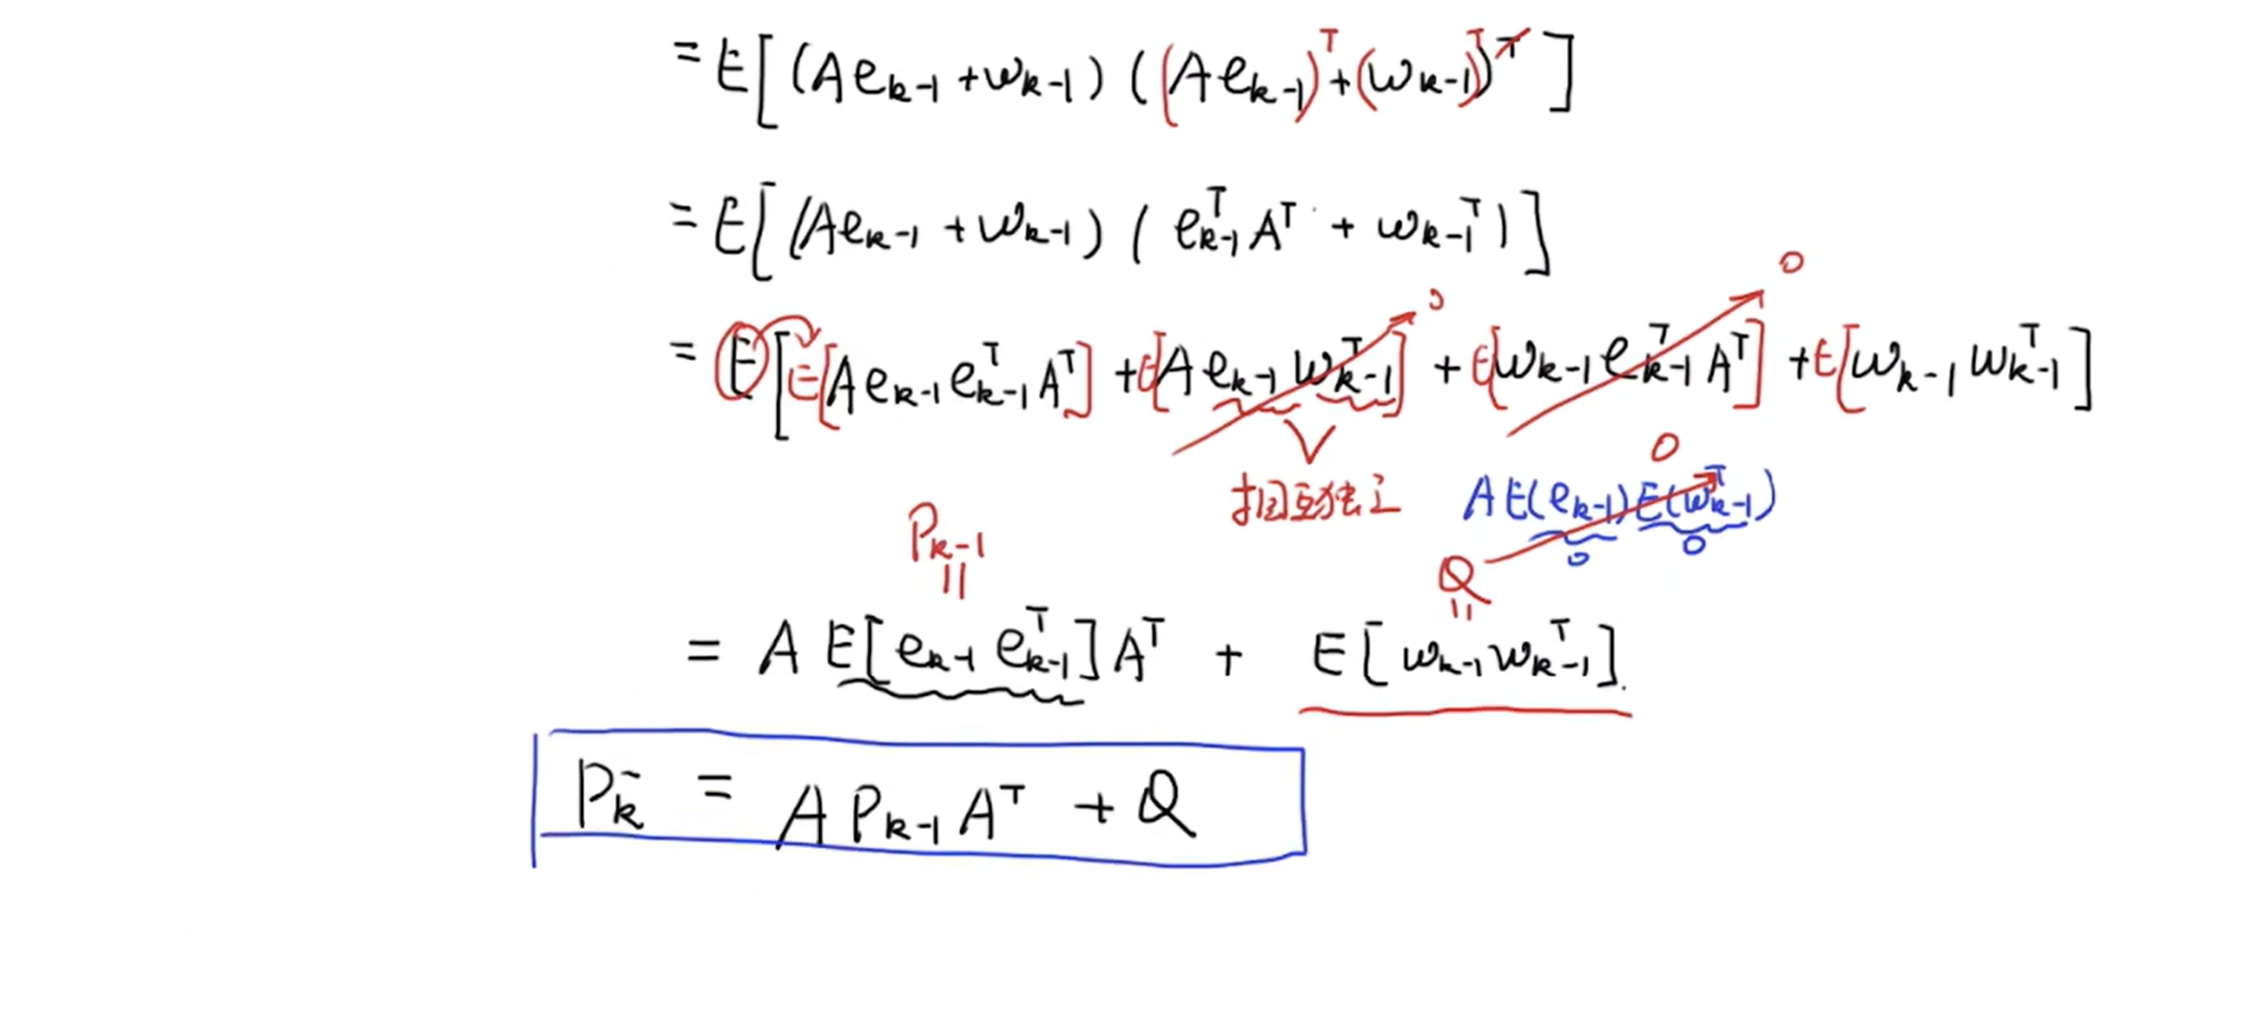 = E[(Ae_{k-1} + w_{k-1}) ((Ae_{k-1})^T + (w_{k-1})^T)^T]
= E[(Ae_{k-1} + w_{k-1}) (e_{k-1}^T A^T + w_{k-1}^T)]
0 0
= E[E[Ae_{k-1} e_{k-1}^T A^T] + E[Ae_{k-1} w_{k-1}^T] + E[w_{k-1} e_{k-1}^T A^T] + E[w_{k-1} w_{k-1}^T]
0
相互独立 A E(e_{k-1}) E(w_{k-1}^T)
0 0
P_{k-1} Q
|| ||
= A E[e_{k-1} e_{k-1}^T] A^T + E[w_{k-1} w_{k-1}^T].
P_k^- = A P_{k-1} A^T + Q